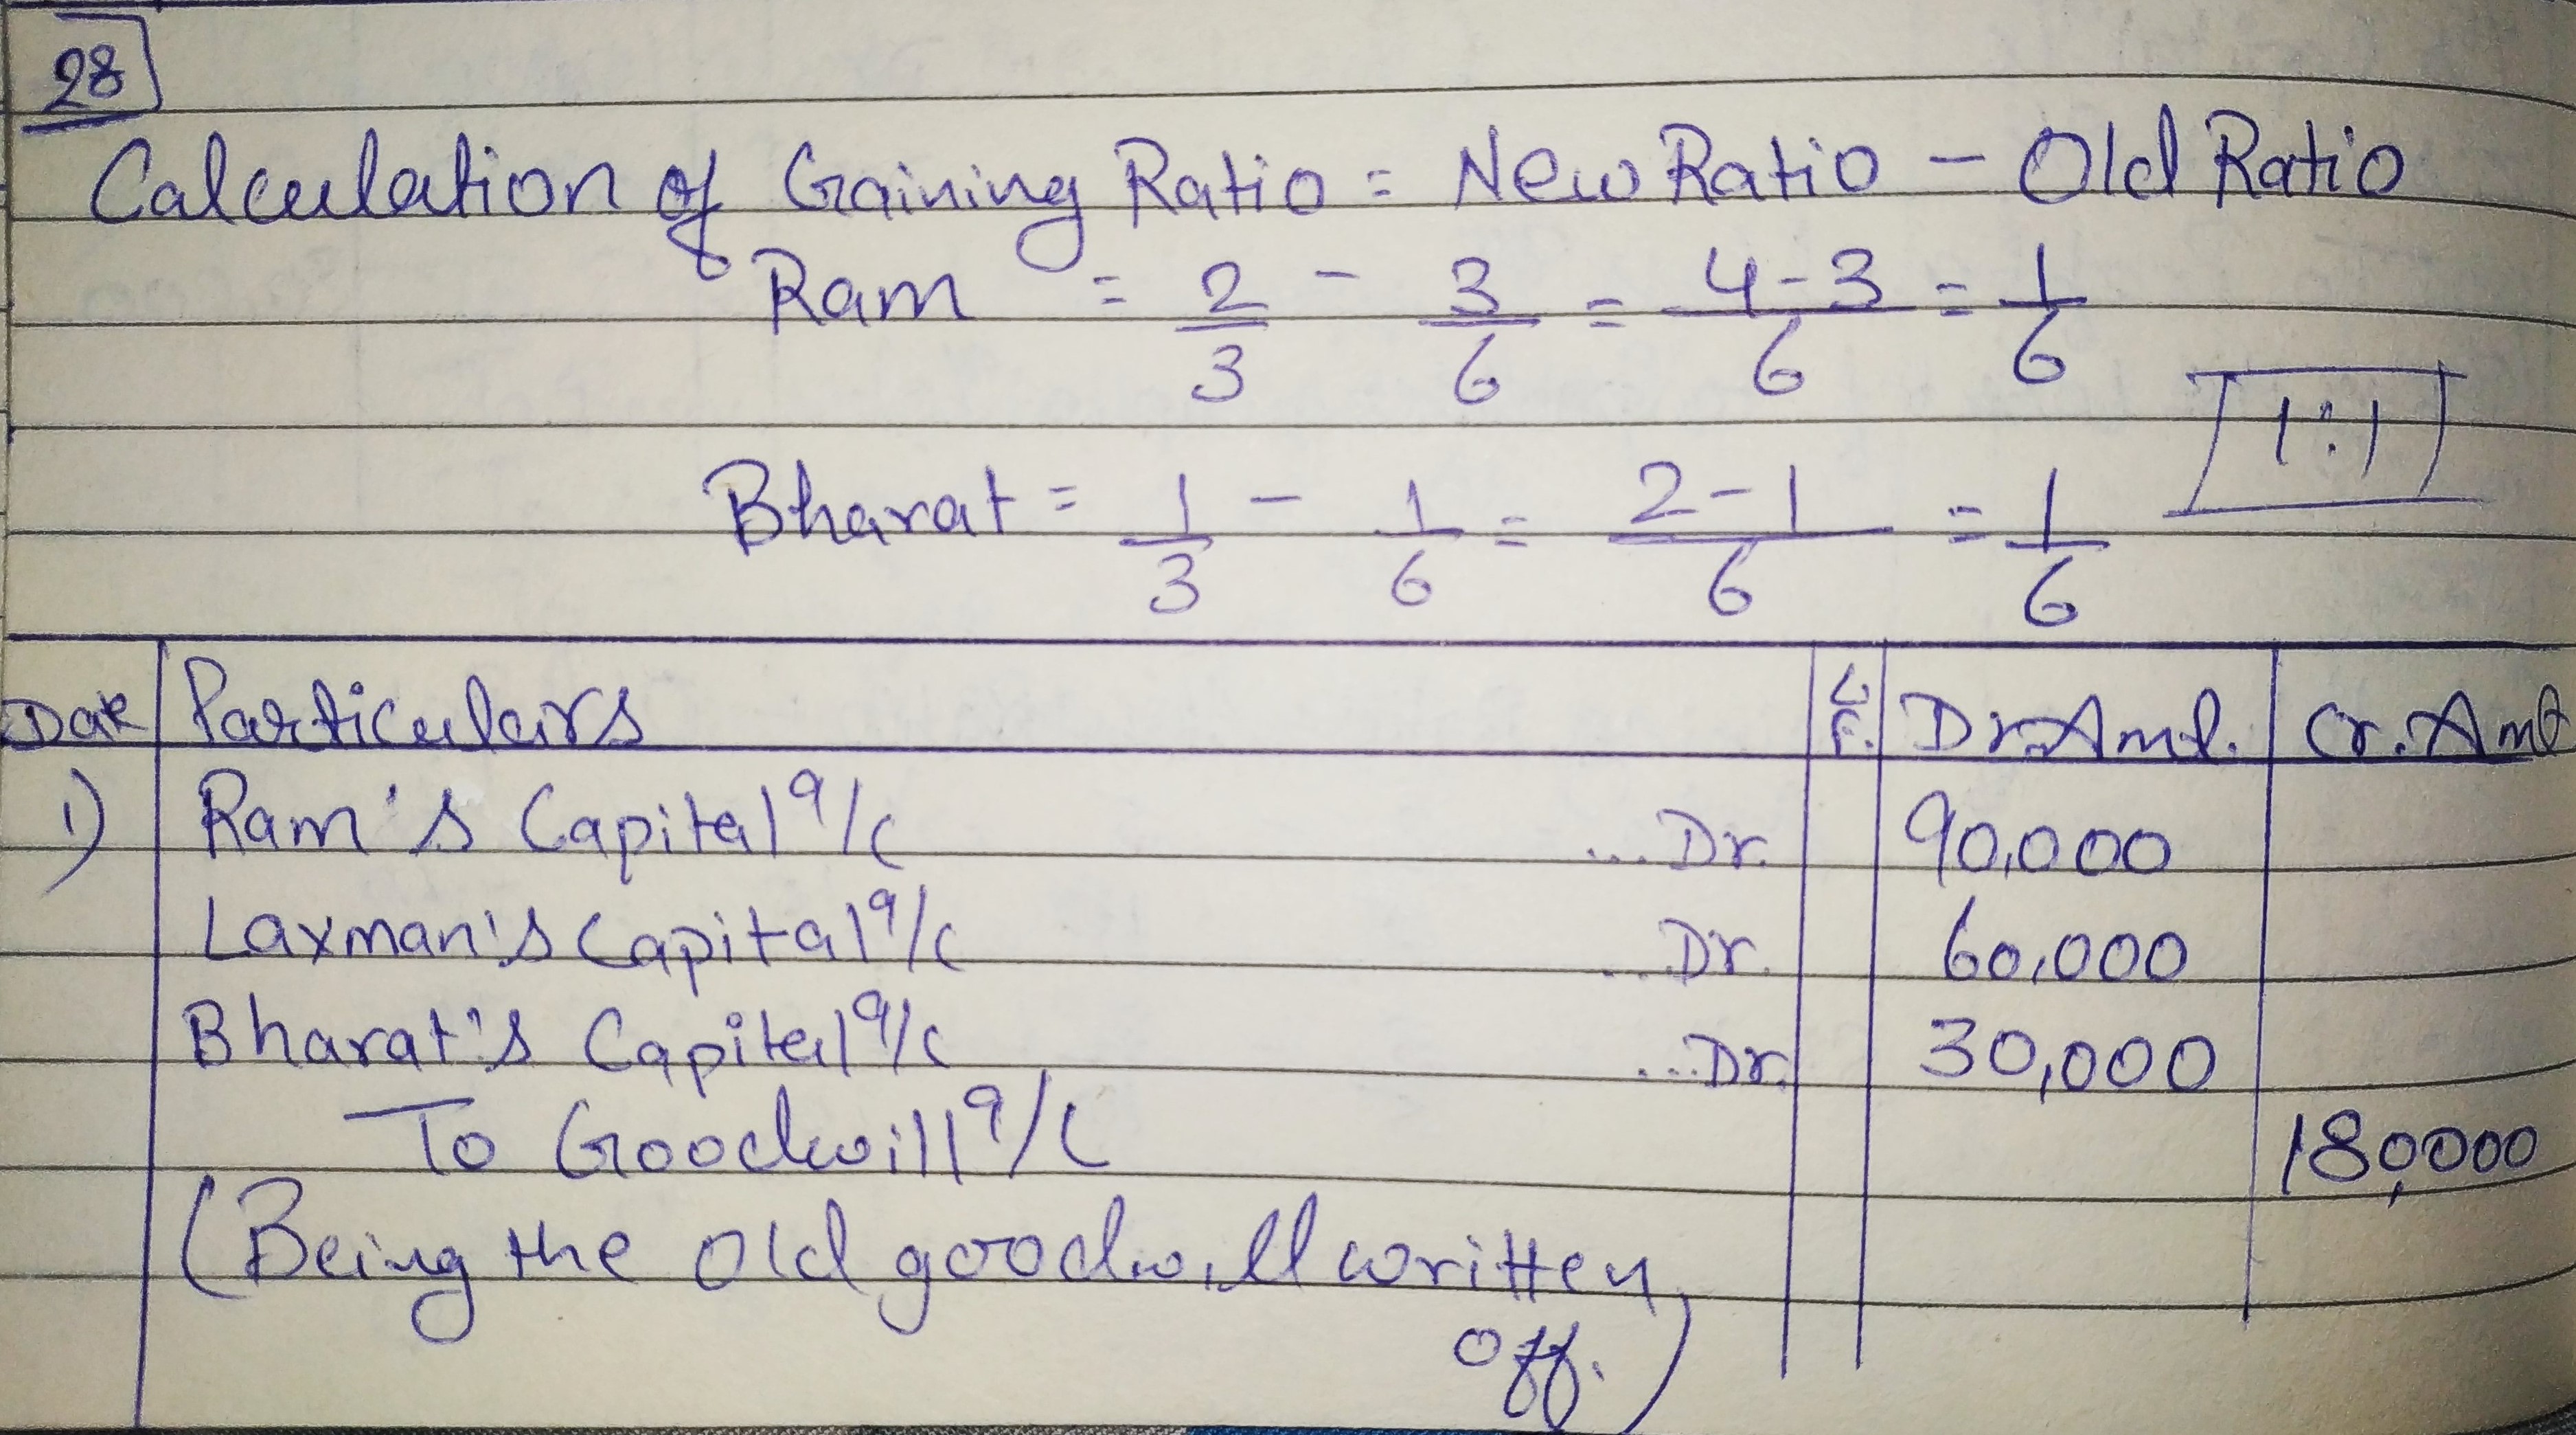 28
Calculation of Gaining Ratio = New Ratio - Old Ratio
Ram = 2/3 - 3/6 = 4-3/6 = 1/6
1:1
Bharat = 1/3 - 1/6 = 2-1/6 = 1/6
Date Particulars L.F. Dr. Amt. Cr. Amt
1) Ram's Capital a/c ...Dr. 90,000
Laxman's Capital a/c ...Dr. 60,000
Bharat's Capital a/c ...Dr. 30,000
To Goodwill a/c 180,000
(Being the old goodwill written
off.)